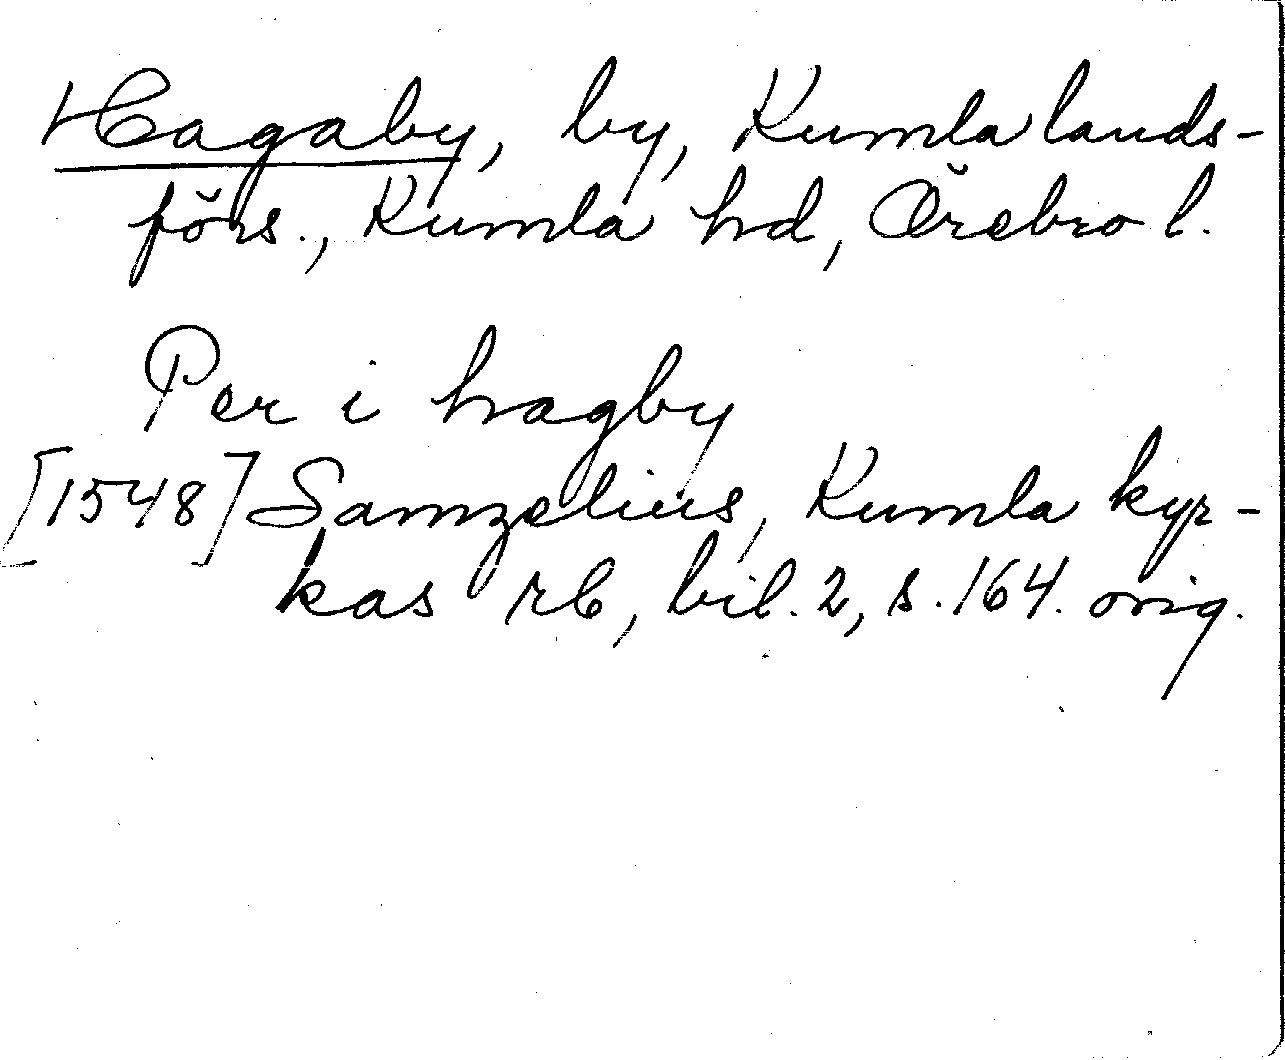 Hagaby, by, Kumla lands-
förs., Kumla hd, Örebro l.
Per i hagby
[1548] Samzelius, Kumla kyr-
kas rb, bil. 2, s. 164. orig.